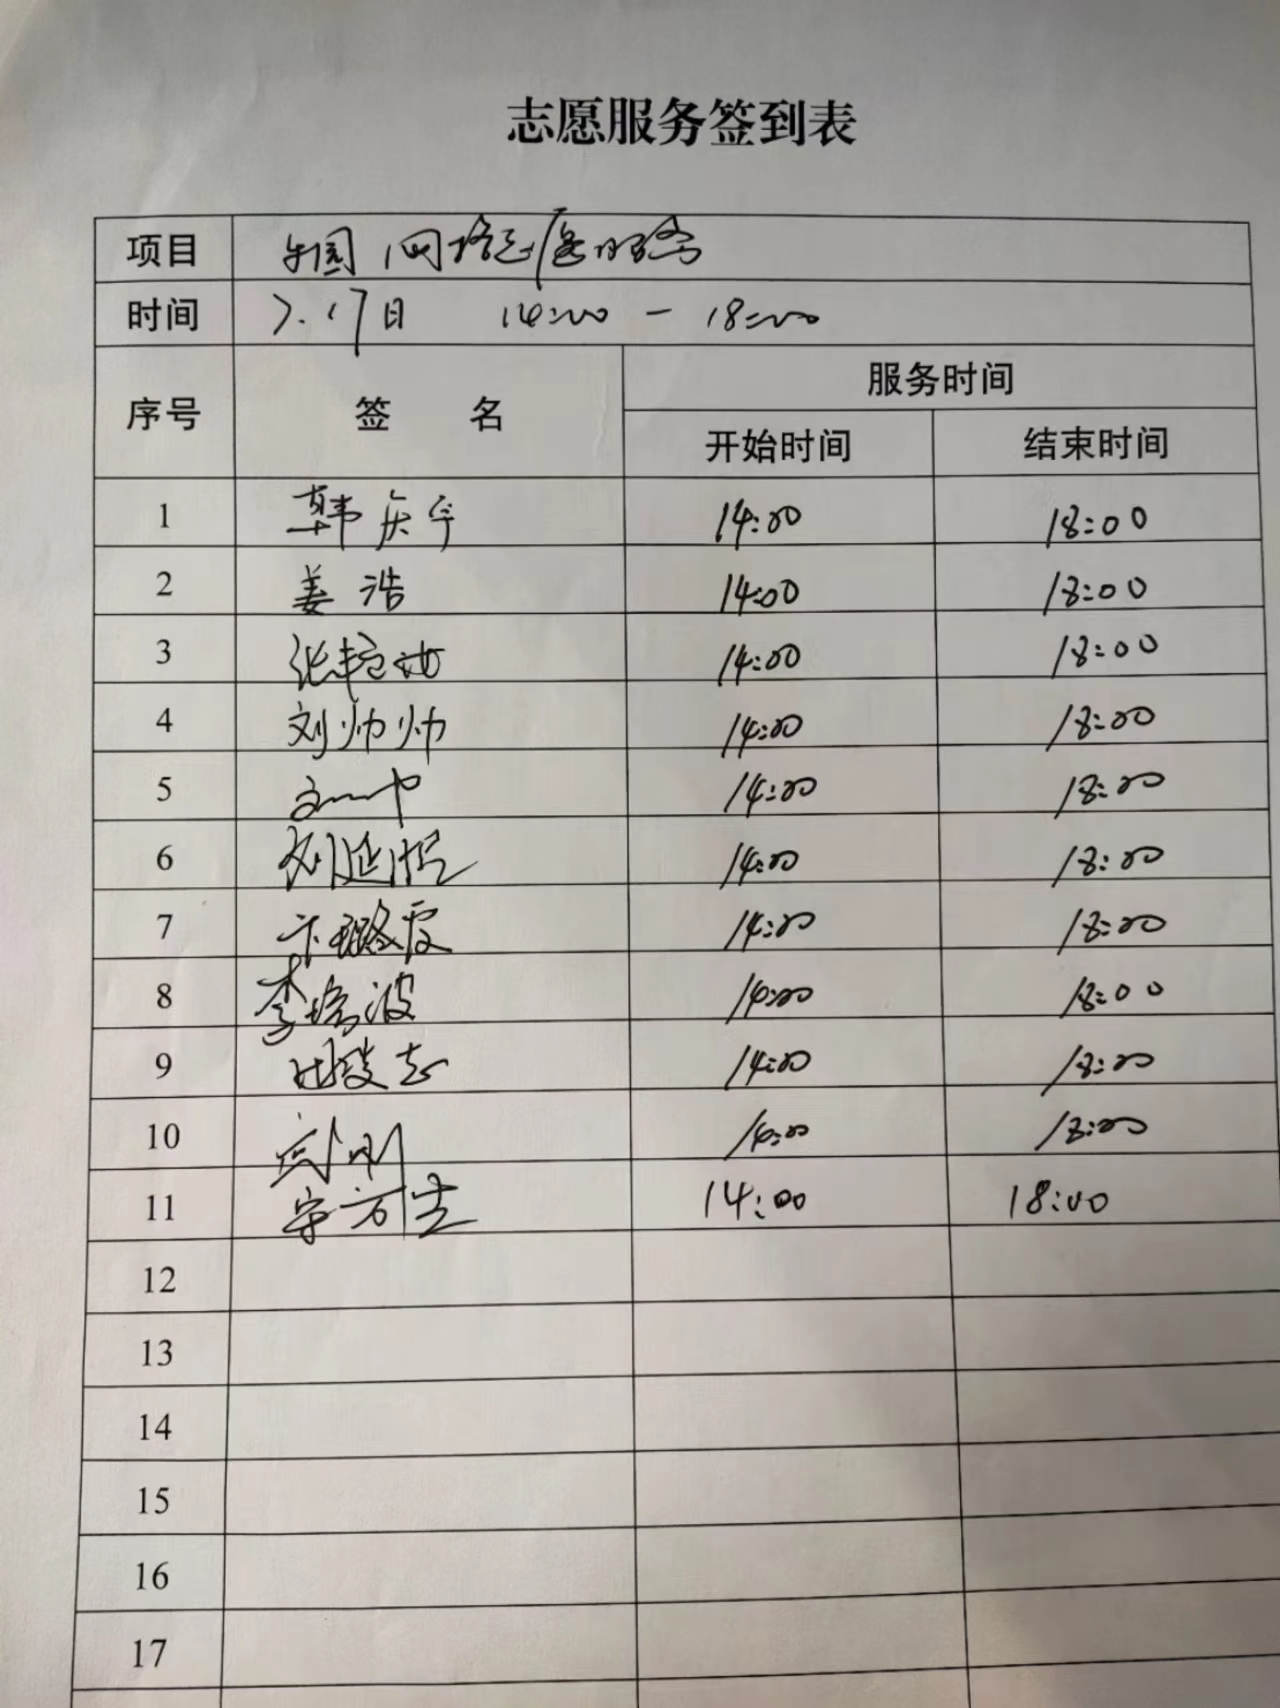 志愿服务签到表
项目 网格志愿服务
时间 7.17日 14:00 - 18:00
序号 签 名 服务时间
开始时间 结束时间
1 韩庆华 14:00 18:00
2 姜浩 14:00 18:00
3 张 14:00 18:00
4 刘帅帅 14:00 18:00
5 14:00 18:00
6 刘延 14:00 18:00
7 卞璐霞 14:00 18:00
8 李瑞波 14:00 18:00
9 志 14:00 18:00
10 14:00 18:00
11 14:00 18:00
12
13
14
15
16
17